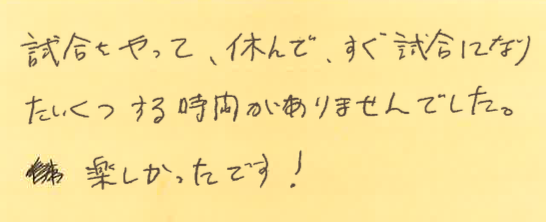 試合をやって、休んで、すぐ試合になり
たいくつする時間がありませんでした。
楽しかったです!